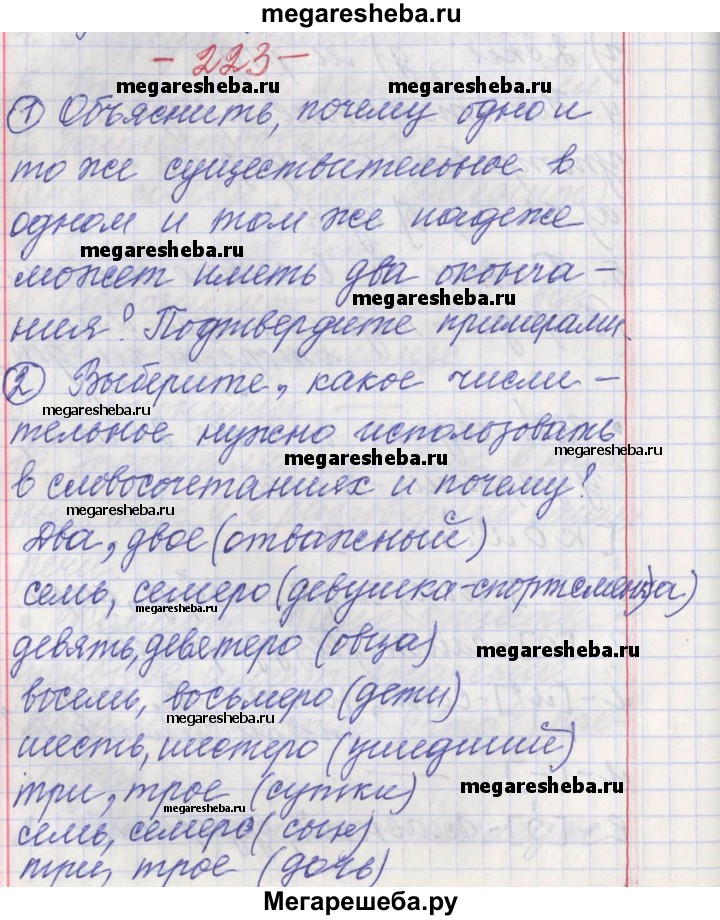 megaresheba.ru
- 223 -
megaresheba.ru
① Объяснить, почему одно и
то же существительное в
одном и том же падеже
megaresheba.ru
может иметь два оконча-
megaresheba.ru
ния? Подтвердите примерами.
② Выберите, какое числи-
megaresheba.ru
тельное нужно использовать
megaresheba.ru
megaresheba.ru
в словосочетаниях и почему?
megaresheba.ru
Два, двое (отважный)
megaresheba.ru
семь, семеро (девушка-спортсменка)
megaresheba.ru
девять, девятеро (овца)
megaresheba.ru
восемь, восьмеро (дети)
megaresheba.ru
шесть, шестеро (ушедший)
megaresheba.ru
три, трое (сутки)
megaresheba.ru
семь, семеро (сын)
три, трое (дочь)
Мегарешеба.ру